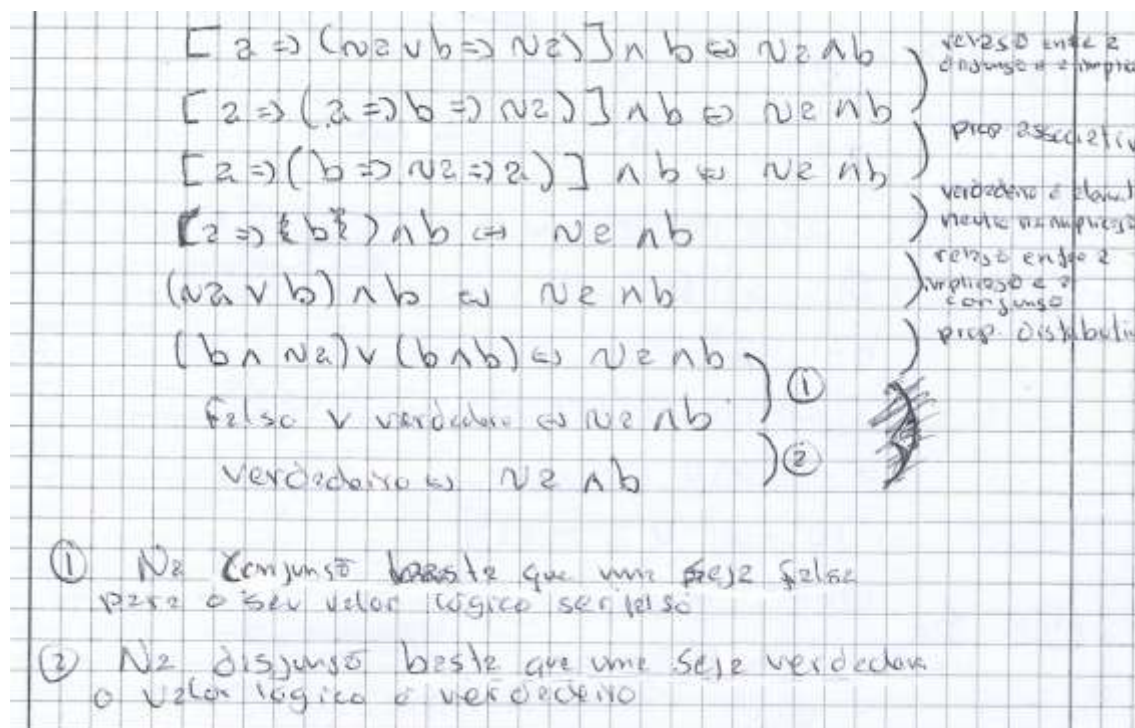 [a => (~a v b => ~a)] ∧ b <=> ~a ∧ b
relação entre a
disjunção e a implica
[a => (a => b => ~a)] ∧ b <=> ~a ∧ b
prop associativ
[a => (b => ~a => a)] ∧ b <=> ~a ∧ b
verdadeiro é elem
neutro na implicação
(a => {b}) ∧ b <=> ~a ∧ b
relação entre a
implicação e a
conjunção
(~a v b) ∧ b <=> ~a ∧ b
prop. distributiv
(b ∧ ~a) v (b ∧ b) <=> ~a ∧ b
①
Falso v verdadeiro <=> ~a ∧ b
②
verdadeiro <=> ~a ∧ b
① Na conjunção basta que uma seja falsa
para o seu valor lógico ser falso
② Na disjunção basta que uma seja verdadeira
o valor lógico é verdadeiro